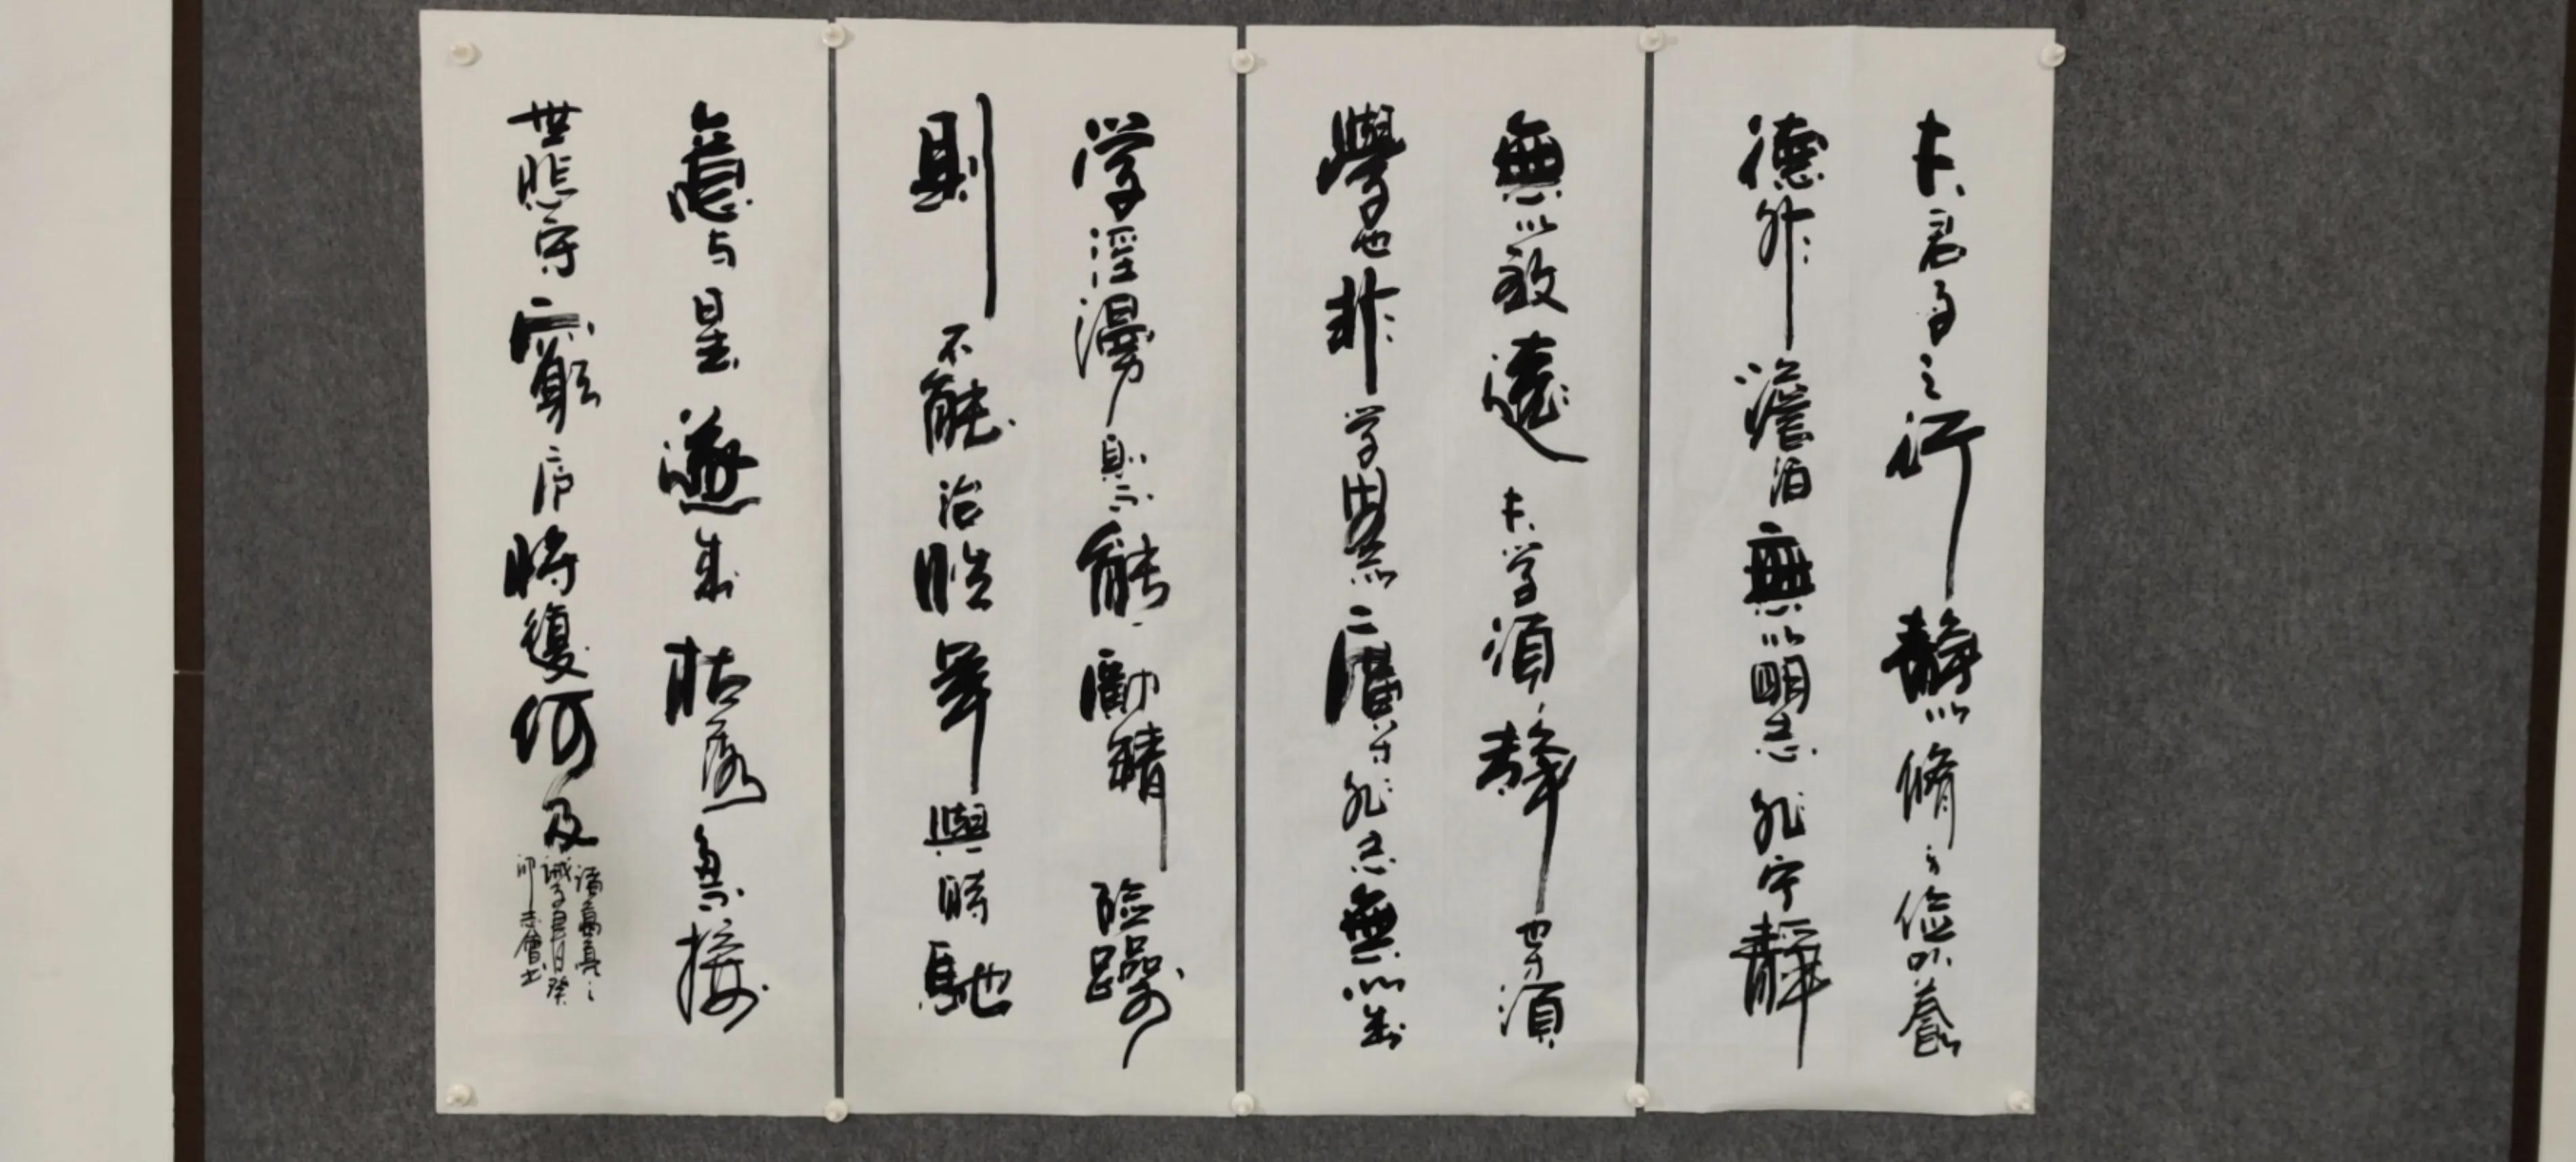 夫君子之行靜以脩身儉以養
德非澹泊無以明志非宁靜
無以致遠夫学須静也才須
學也非学無以廣才非志無以成
学淫漫則不能勵精险躁
則不能治性年與時馳
意与日去遂成枯落多不接
世悲守窮庐將復何及
諸葛亮之
誡子書 癸
卯志會